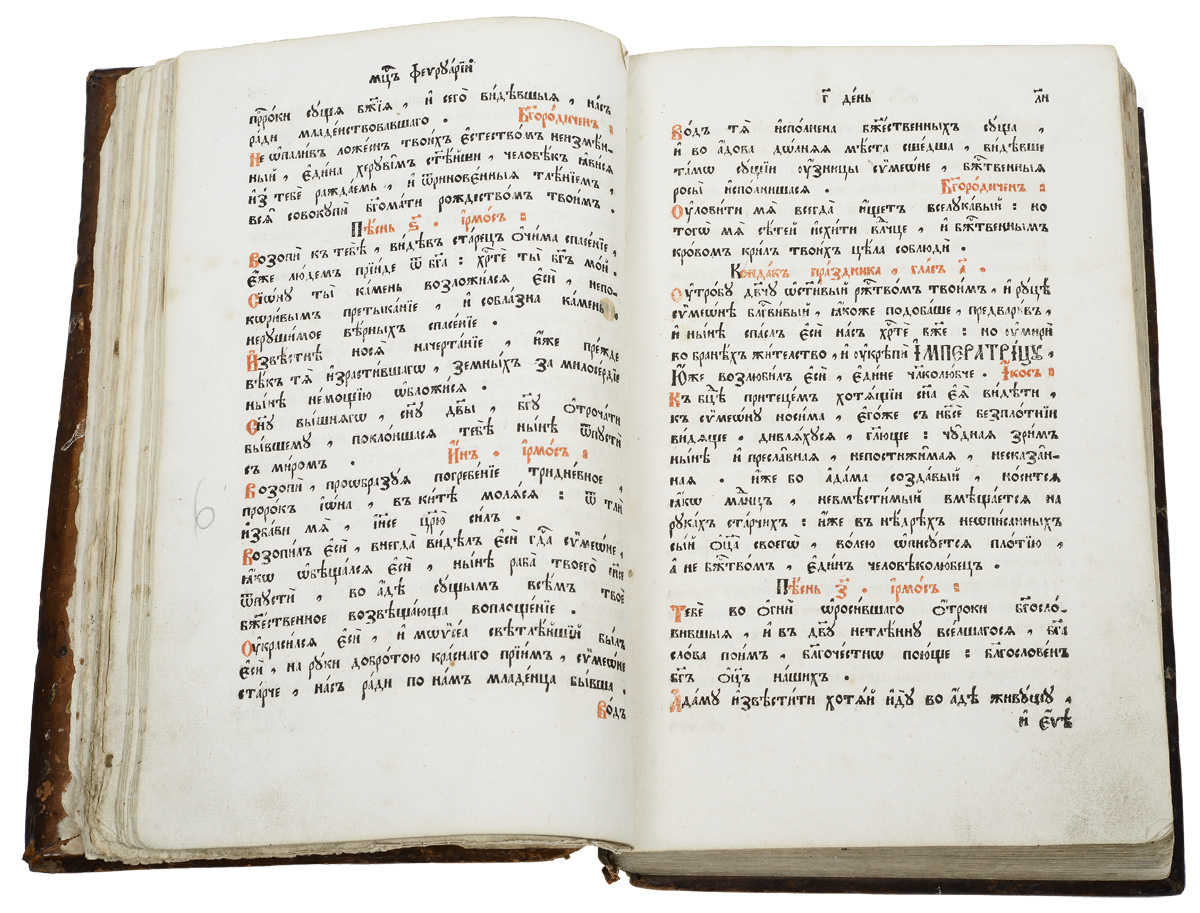 мц҃ъ феѵрꙋа́рїй
прⷪ҇ро́ки сꙋ́щыѧ бж҃їѧ , и҆ сего̀ ви́дѣвшыѧ , на́съ
ра́ди младе́нствовавшаго . Бг҃оро́диченъ :
Не ѡ҆пали́въ ложе́снъ твои́хъ є҆стество́мъ неизмѣ́н-
ный , є҆ди́на херꙋві̑мъ ст҃ѣ́йши , человѣ́къ ꙗ҆ви́сѧ
и҆з̾ тебє̀ ражда́емь , и҆ ѿринове́нныѧ тлѣ́нїемъ ,
всѧ̑ совокꙋпѝ бг҃ома́ти рождество́мъ твои́мъ .
Пѣ́снь ѕ҃ . і҆рмо́съ :
Возопѝ къ тебѣ̀ , ви́дѣвъ ста́рецъ ѻ҆чи́ма спасе́нїе ,
є҆́же лю́демъ прїи́де ѿ бг҃а : хрⷭ҇тѐ ты̀ бг҃ъ мо́й .
Сїѡ́нꙋ ты̀ ка́мень возложи́лсѧ є҆сѝ , непо-
кѡри̑вымъ претыка́нїе , и҆ собла́зна ка́мень .
нерꙋши́мое вѣ́рныхъ спасе́нїе .
И҆звѣ́стнѣ носѧ̀ начерта́нїе , и҆́же пре́жде
вѣ̑къ тѧ̀ и҆зрасти́вшагѡ , земны́хъ за милосе́рдїе
ны́нѣ не́мощїю ѡ҆бложи́сѧ .
Сн҃ꙋ вы́шнѧгѡ , сн҃ꙋ дв҃ы , бг҃ꙋ ѻ҆троча́ти
бы́вшемꙋ , поклони́шасѧ тебѣ̀ ны́нѣ ѿпꙋстѝ
съ ми́ромъ . И҆́нъ . і҆рмо́съ :
Возопѝ , проѡбразꙋ́ѧ погребе́нїе тридне́вное ,
проро́къ і҆ѡ́на , въ ки́тѣ молѧ́сѧ : ѿ тлѝ
и҆зба́ви мѧ̀ , і҆и҃се цр҃ю̀ си́лъ .
Возопи́лъ є҆сѝ , внегда̀ ви́дѣлъ є҆сѝ гдⷭ҇а сѷмеѡ́не ,
ꙗ҆́кѡ ѡ҆бѣща́лсѧ є҆сѝ , ны́нѣ раба̀ твоего̀ сп҃се
ѿпꙋстѝ , во а҆́дѣ сꙋ́щымъ всѣ̑мъ твоѐ
бж҃е́ственное возвѣща́юща воплоще́нїе .
Оу҆краси́лсѧ є҆сѝ , и҆ мѡѷсе́а свѣтлѣ́йшїй бы́лъ
є҆сѝ , на рꙋ́ки добро́тою кра́снаго прїи́мъ , сѷмеѡ́не
ста́рче , на́съ ра́ди по на́мъ младе́нца бы́вша .
Во́дъ
г҃ де́нь
л҃и
Во́дъ тѧ̀ и҆спо́лнена бж҃е́ственныхъ сꙋ́ща ,
и҆ во а҆́дова дѡ́лнаѧ мѣ́ста сше́дша , ви́дѣвше
та́мѡ сꙋ́щїи ѹ҆́зницы сѷмеѡ́не , бж҃е́ственныѧ
росы̀ и҆спо́лнишасѧ . Бг҃оро́диченъ :
Оу҆лови́ти мѧ̀ всегда̀ и҆́щетъ вселꙋка́вый : но
тогѡ̀ мѧ̀ сѣ́тей и҆схи́ти вл҃чце , и҆ бж҃е́ственнымъ
кро́вомъ кри́лъ твои́хъ цѣ́ла соблюдѝ .
Конда́къ пра́здника , гла́съ а҃ .
Оу҆тро́бꙋ дв҃чꙋ ѡ҆ст҃и́вый ржⷭ҇тво́мъ твои́мъ , и҆ рꙋ́цѣ
сѷмеѡ́нѣ блгⷭ҇ви́вый , ꙗ҆́коже подоба́ше , предвари́въ ,
и҆ ны́нѣ спа́слъ є҆сѝ на́съ хрⷭ҇тѐ бж҃е : но ѹ҆мирѝ
во бра́нехъ жи́тельство , и҆ ѹ҆крѣпѝ І҆МПЕРАТРИ́ЦꙊ ,
Ю҆́же возлюби́лъ є҆сѝ , є҆ди́не чл҃вѣколю́бче . І҆́косъ :
Къ бцⷣѣ прите́цемъ хотѧ́щїи сн҃а є҆ѧ̀ ви́дѣти ,
къ сѷмеѡ́нꙋ носи́ма , є҆го́же съ нб҃сѐ безпло́тнїи
ви́дѧще . дивлѧ́хꙋсѧ , гл҃юще : чꙋ̑днаѧ зри́мъ
ны́нѣ и҆ пресла̑внаѧ , непостижи̑маѧ , несказа̑н-
наѧ . и҆́же бо а҆да́ма созда́вый , но́ситсѧ
ꙗ҆́кѡ млⷣнцъ , невмѣсти́мый вмѣща́етсѧ на
рꙋка́хъ ста́рчихъ : и҆́же въ нѣ́дрѣхъ неѡпи́санныхъ
сы́й ѻ҆ц҃а̀ своегѡ̀ , во́лею ѡ҆писꙋ́етсѧ пло́тїю ,
а҆ не бж҃ество́мъ , є҆ди́нъ человѣколю́бецъ .
Пѣ́снь з҃ . і҆рмо́съ :
Тебѐ во ѻ҆гнѝ ѡ҆роси́вшаго ѻ҆́троки бг҃осло́-
вившыѧ , и҆ въ дв҃ꙋ нетлѣ́ннꙋ все́льшагосѧ , бг҃а
сло́ва пои́мъ , бл҃гоче́стнѡ пою́ще : бл҃гослове́нъ
бг҃ъ ѻ҆ц҃ъ на́шихъ .
А҆да́мꙋ и҆звѣсти́ти хотѧ́й и҆дꙋ̀ во а҆́дѣ живꙋ́щꙋ ,
и҆ є҆́ѵѣ
6